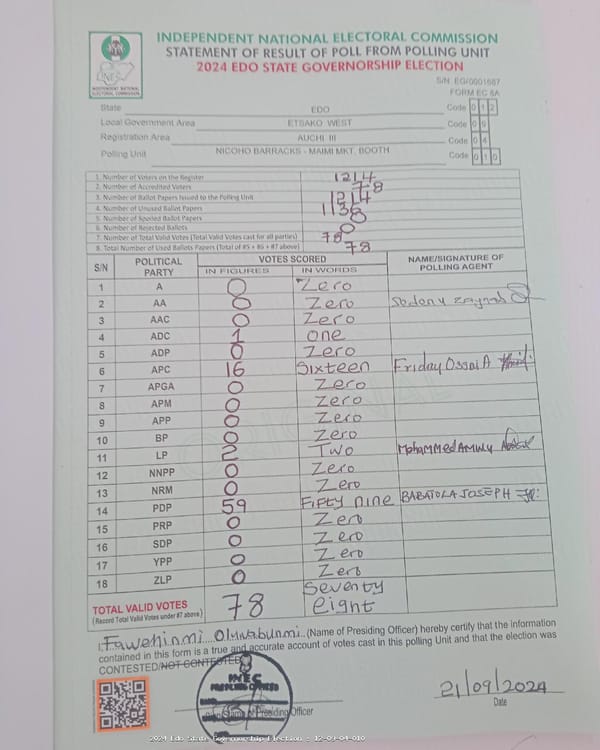 INDEPENDENT NATIONAL ELECTORAL COMMISSION
STATEMENT OF RESULT OF POLL FROM POLLING UNIT
2024 EDO STATE GOVERNORSHIP ELECTION
INEC
INDEPENDENT NATIONAL ELECTORAL COMMISSION
S/N: EG/0001687
FORM EC 8A
State EDO Code 0 1 2
Local Government Area ETSAKO WEST Code 0 9
Registration Area AUCHI III Code 0 4
Polling Unit NICOHO BARRACKS - MAIMI MKT. BOOTH Code 0 1 0
1. Number of Voters on the Register 1214
2. Number of Accredited Voters 78
3. Number of Ballot Papers Issued to the Polling Unit 1214
4. Number of Unused Ballot Papers 1136
5. Number of Spoiled Ballot Papers 0
6. Number of Rejected Ballots 0
7. Number of Total Valid Votes (Total Valid Votes cast for all parties) 78
8. Total Number of Used Ballots Papers (Total of #5 + #6 + #7 above) 78
S/N POLITICAL PARTY VOTES SCORED NAME/SIGNATURE OF POLLING AGENT
IN FIGURES IN WORDS
1 A 0 Zero
2 AA 0 Zero
3 AAC 0 Zero
4 ADC 1 one
5 ADP 0 Zero
6 APC 16 Sixteen Friday Ossai A
7 APGA 0 Zero
8 APM 0 Zero
9 APP 0 Zero
10 BP 0 Zero
11 LP 2 Two Mohammed Aminu
12 NNPP 0 Zero
13 NRM 0 Zero
14 PDP 59 Fifty nine BABATOLA JOSEPH
15 PRP 0 Zero
16 SDP 0 Zero
17 YPP 0 Zero
18 ZLP 0 Zero
TOTAL VALID VOTES 78 Seventy eight
(Record Total Valid Votes under #7 above)
I, Fawehinmi Oluwabunmi (Name of Presiding Officer) hereby certify that the information
contained in this form is a true and accurate account of votes cast in this polling Unit and that the election was
CONTESTED/NOT CONTESTED
INEC
PRESIDING OFFICER
Presiding Officer
21/09/2024
Date
2024 Edo State Governorship Election - 12-09-04-010